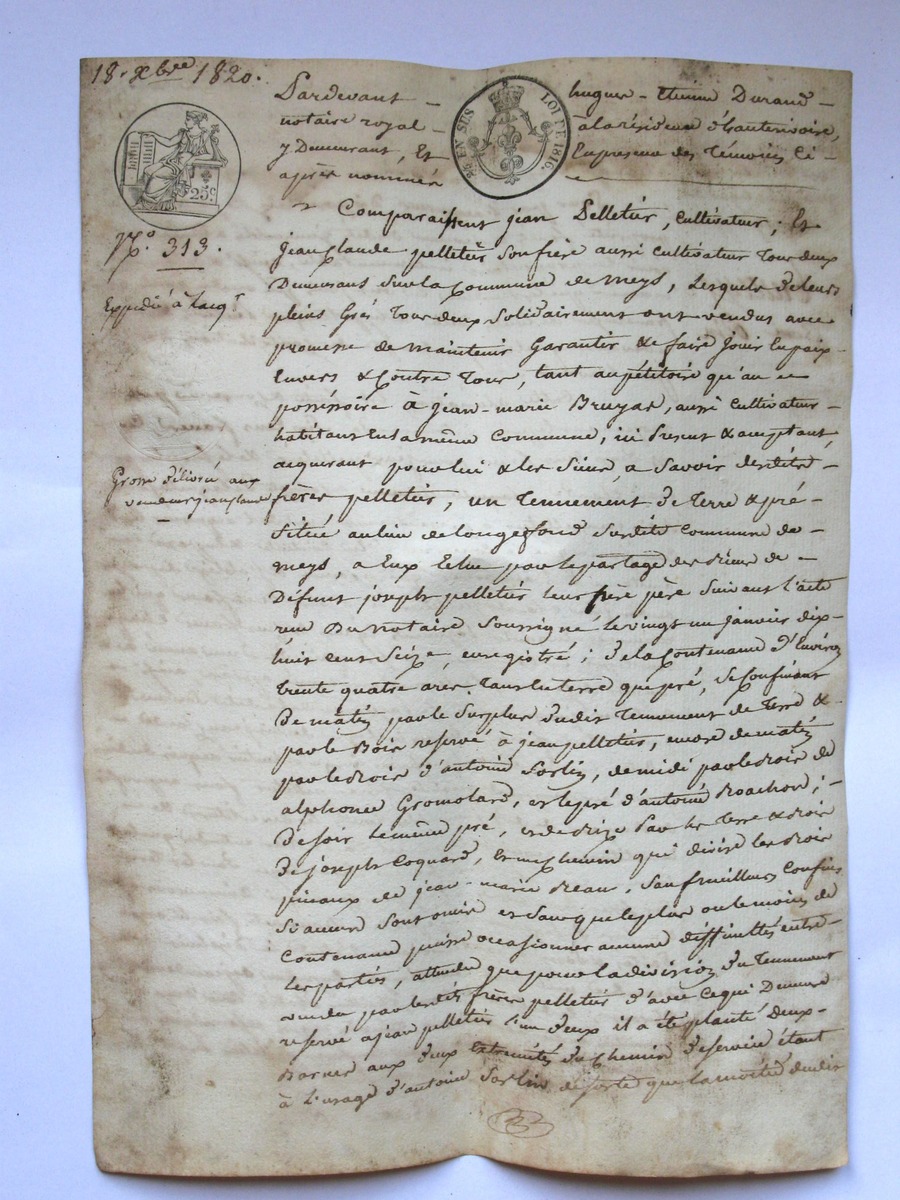 18. xbre 1820.
25c
25c EN SUS LOI DE 1816.
No. 313.
Expédié à l'acqr
Grosse délivrée aux
vendeurs jean claude
Pardevant hugues-Etienne Durand
notaire royal à la résidence d'hauterivoire,
y Demeurant, Et En presence des Témoins Ci-
après nommés
Comparaissent jean Pelletier, Cultivateur; Et
jean Claude pelletier son frère aussi cultivateur Tous deux
Demeurans sur la Commune de meys, Lesquels de leurs
pleins Grés Tous deux solidairement ont vendus avec
promesse de maintenir Garantir & faire jouir En paix
Envers & Contre Tous, tant au pétitoire qu'au
posséssoire à jean-marie Bruyas, aussi cultivateur
habitant En la même Commune, ici Present & acceptant,
acquerant pour lui & les siens, a savoir desdits
frères pelletier, un Tennement de Terre & pré
Situé au lieu de longefond susdite Commune de
meys, a Eux Echu par le partage des Biens de
Défunt joseph pelletier leur père suivant l'acte
reçu Du notaire Soussigné le vingt un janvier dix
huit cent Seize, enregistré; de la Contenance d'Environ
trente quatre ares, Tant En terre que pré, se Confinant
De matin par le Surplus dudit Tennement de Terre &
par le Bois reservé à jean pelletier, encore de matin
par le Bois d'antoine Sorlin, de midi par le Bois de
alphonse Gromolard, et le pré d'antoine Roachon;
De soir le même pré, et de Bize Par les Terre & Bois
De joseph Coquard, Et un Chemin qui divise les Bois
pineaux de jean-marie Reau, Sauf meilleurs Confins
Si aucuns Sont omis et sans que le plus ou le moins de
Contenance puisse occasionner aucune difficultés entre
les parties, attendu que pour la division du Tennement
vendu par lesdits frères pelletier d'avec Ce qui Demeure
reservé a jean pelletier l'un d'eux il a été planté Deux
Bornes aux deux Extremités du Chemin De service étant
à l'usage d'antoine Sorlin de sorte que la moitié dudit